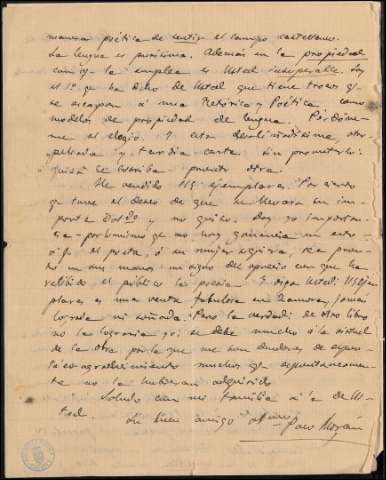 manera poética de sentir el campo castellano.
La lengua es purísima. Además en la propiedad
con q. la emplea es Usted insuperable. Soy
el 1º qe ha dicho de Usted que tiene trozos q.
se escogerán a una Retórica y Poética como
modelos de propiedad de lengua. Perdóne-
me el elogio. Y esta deslavazadísima
y tardía carta. Sin prometerlo
quizá le escriba pronto otra.
He vendido 115 ejemplares. Por cierto
qe tuve el deseo de que se llevara su im-
porte Dª y no quiso. Doy yo importan-
cia por lo mismo qe no hay ganancia en esto
a qe el poeta, o su mujer, vea pron-
to en sus manos un signo del aprecio con que ha
recibido el público la poesía. Y diga Usted: 115 ejem-
plares es una venta fabulosa en Zamora, jamás
lograda ni soñada. Pero la verdad: de otro libro
no la lograría yo; se debe mucho a la virtud
de la obra, por la que me son deudores de
agradecimiento muchos qe espontáneamen-
te no la hubieran adquirido
Saluda con mi familia a la de U-
sted.
Su buen amigo